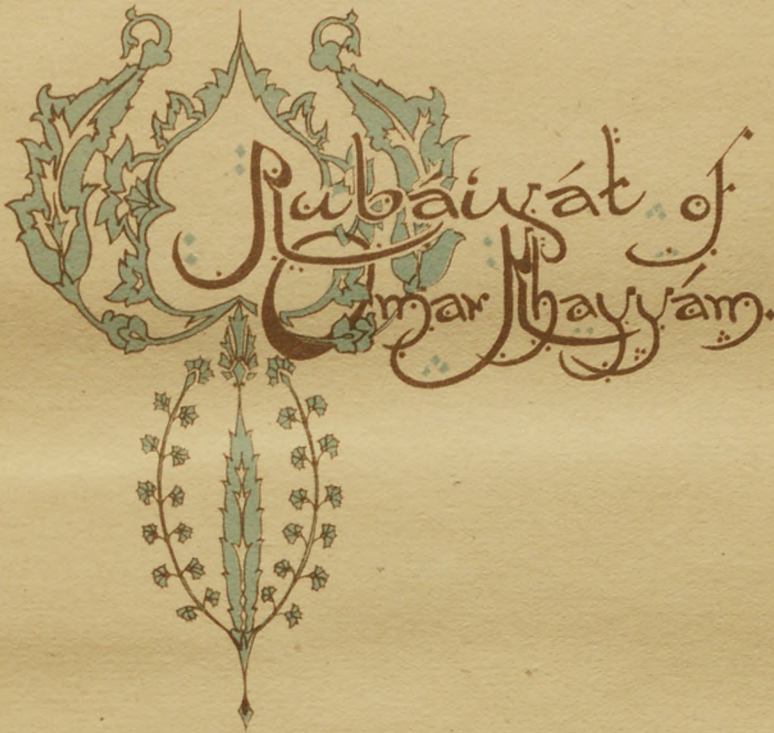 Rubáiyát of
Omar Khayyám.